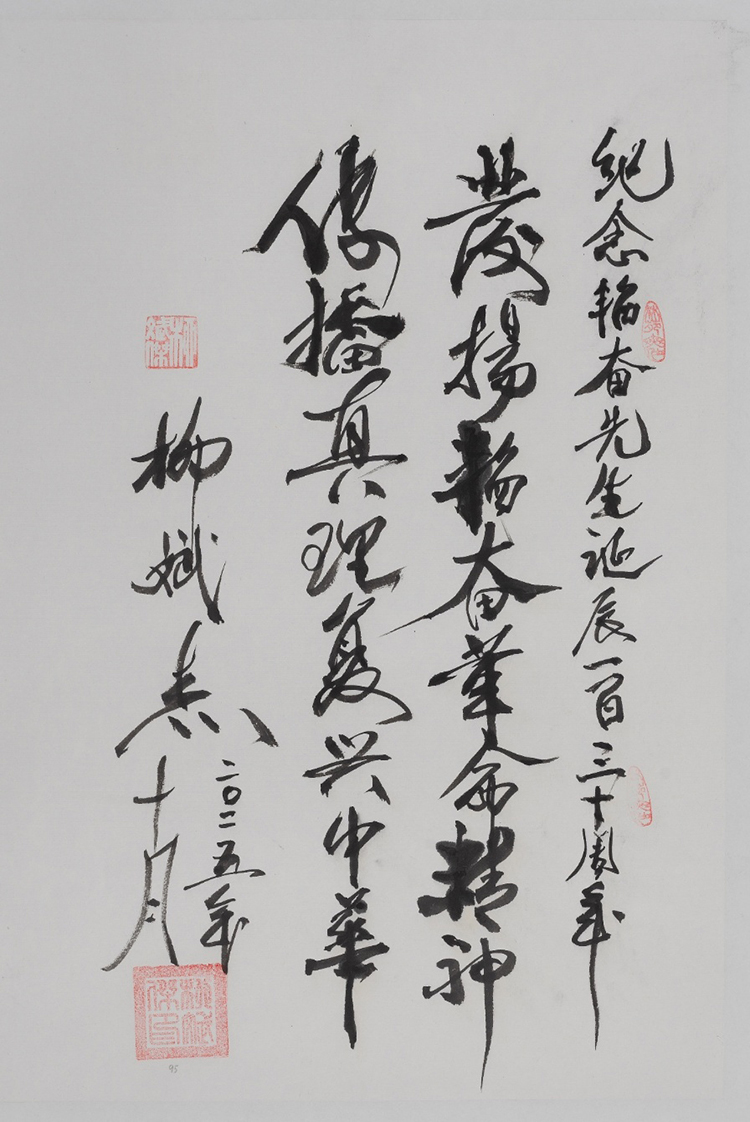 纪念韬奋先生诞辰一百三十周年
發揚韬奋革命精神
傳播真理复兴中華
柳斌杰
二〇二五年
十月
柳斌傑印
95